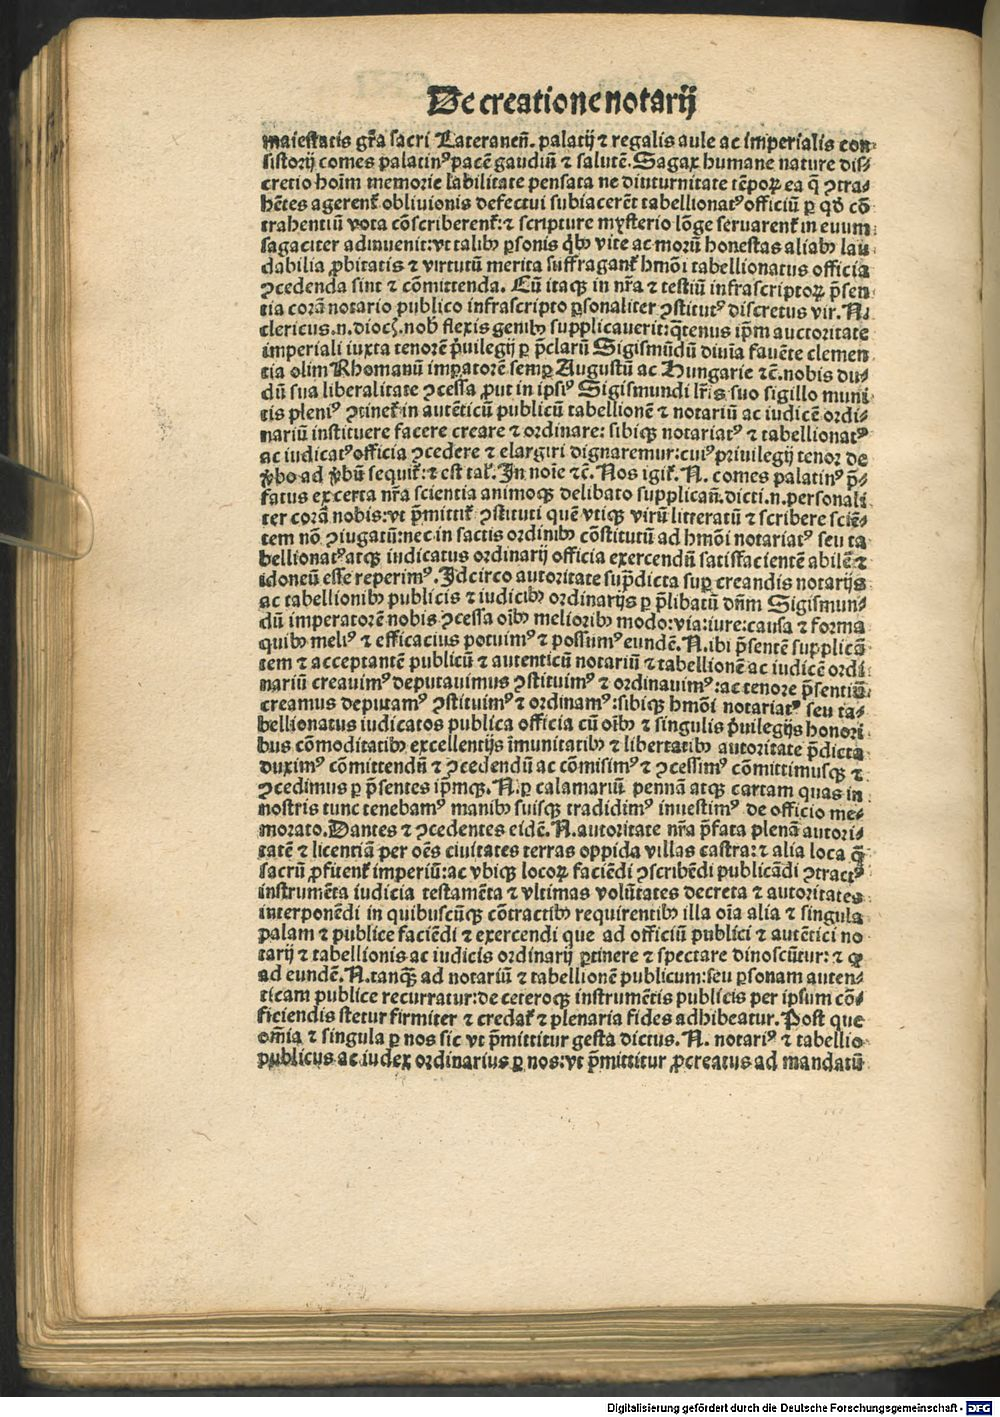 De creatione notarij
maiestatis gr̄a sacri Lateraneñ. palatij ⁊ regalis aule ac imperialis con-
sistorij comes palatin⁹ pacē gaudiū ⁊ salutē. Sagax humane nature dis-
cretio hoīm memorie labilitate pensata ne diuturnitate tēpoꝝ ea q̄ ꝯtra-
hētes agerent̄ obliuionis defectui subiacerēt tabellionat⁹ officiū ꝑ qd̄ cō
trahentiū vota cōscriberent̄: ⁊ scripture mysterio lōge seruarent̄ in euum
sagaciter adinuenit: vt talibꝫ ꝑsonis q̄bꝫ vite ac morū honestas aliabꝫ lau
dabilia ꝓbitatis ⁊ virtutū merita suffragant̄ hmōi tabellionatus officia
ꝯcedenda sint ⁊ cōmittenda. Cū itaqꝫ in nr̄a ⁊ testiū infrascriptoꝝ p̄sen-
tia corā notario publico infrascripto ꝑsonaliter ꝯstitut⁹ discretus vir. N.
clericus. n. dioc̄. nob̄ flexis genibꝫ supplicauerit: q̄tenus ip̄m auctoritate
imperiali iuxta tenorē p̄uilegij ꝑ p̄clarū Sigismūdū diuīa fauēte clemen
tia olim Rhomanū imꝑatorē semꝑ Augustū ac Hungarie ⁊c̄. nobis du-
dū sua liberalitate ꝯcessa ꝓut in ipsi⁹ Sigismundi lr̄is suo sigillo muni
tis pleni⁹ ꝯtinet̄ in autēticū publicū tabellionē ⁊ notariū ac iudicē ordi-
nariū instituere facere creare ⁊ ordinare: sibiqꝫ notariat⁹ ⁊ tabellionat⁹
ac iudicat⁹ officia ꝯcedere ⁊ elargiri dignaremur: cui⁹ priuilegij tenor de
v̄bo ad v̄bū sequit̄: ⁊ est tal̄. In noīe ⁊c̄. Nos igit̄. N. comes palatin⁹ p̄-
fatus ex certa nr̄a scientia animoqꝫ delibato supplicañ. dicti. n. personali
ter corā nobis: vt p̄mittit̄ ꝯstituti quē vtiqꝫ virū litteratū ⁊ scribere sciē-
tem nō ꝯiugatū: nec in sactis ordinibꝫ cōstitutū ad hmōi notariat⁹ seu ta
bellionat⁹ atqꝫ iudicatus ordinarij officia exercendū satisfacientē abilē ⁊
idoneū esse reperim⁹. Idcirco autoritate supradicta suꝑ creandis notarijs
ac tabellionibꝫ publicis ⁊ iudicibꝫ ordinarijs ꝑ p̄libatū dn̄m Sigismun-
dū imperatorē nobis ꝯcessa oībꝫ melioribꝫ modo: via: iure: causa ⁊ forma
quibꝫ meli⁹ ⁊ efficacius potuim⁹ ⁊ possum⁹ eundē. N. ibi p̄sentē supplicā
tem ⁊ acceptantē publicū ⁊ autenticū notariū ⁊ tabellionē ac iudicē ordi
nariū creauim⁹ deputauimus ꝯstituim⁹ ⁊ ordinauim⁹: ac tenore p̄sentiū
creamus deputam⁹ ꝯstituim⁹ ⁊ ordinam⁹: sibiqꝫ hmōi notariat⁹ seu ta-
bellionatus iudicatos publica officia cū oībꝫ ⁊ singulis p̄uilegijs honori
bus cōmoditatibꝫ excellentijs īmunitatibꝫ ⁊ libertatibꝫ autoritate p̄dicta
duxim⁹ cōmittendū ⁊ ꝯcedendū ac cōmisim⁹ ⁊ ꝯcessim⁹ cōmittimusqꝫ ⁊
ꝯcedimus ꝑ p̄sentes ip̄mqꝫ. N. ꝑ calamariū pennā atqꝫ cartam quas in
nostris tunc tenebam⁹ manibꝫ suisqꝫ tradidim⁹ inuestim⁹ de officio me-
morato. Dantes ⁊ ꝯcedentes eidē. N. autoritate nr̄a p̄fata plenā autori-
tatē ⁊ licentiā per oēs ciuitates terras oppida villas castra: ⁊ alia loca q̄
sacrū ꝓfitent̄ imperiū: ac vbiqꝫ locoꝝ faciēdi ꝯscribēdi publicādi ꝯtract⁹
instrumēta iudicia testamēta ⁊ vltimas volūtates decreta ⁊ autoritates
interponēdi in quibuscūqꝫ cōtractibꝫ requirentibꝫ illa oīa alia ⁊ singula
palam ⁊ publice faciēdi ⁊ exercendi que ad officiū publici ⁊ autētici no
tarij ⁊ tabellionis ac iudicis ordinarij ꝑtinere ⁊ spectare dinoscūtur: ⁊ ꝙ
ad eundē. N. tanqꝫ ad notariū ⁊ tabellionē publicum: seu ꝑsonam auten-
ticam publice recurratur: de ceteroqꝫ instrumētis publicis per ipsum cō-
ficiendis stetur firmiter ⁊ credat̄ ⁊ plenaria fides adhibeatur. Post que
om̄ia ⁊ singula ꝑ nos sic vt p̄mittitur gesta dictus. N. notari⁹ ⁊ tabellio
publicus ac iudex ordinarius ꝑ nos: vt p̄mittitur ꝓcreatus ad mandatū
Digitalisierung gefördert durch die Deutsche Forschungsgemeinschaft - DFG